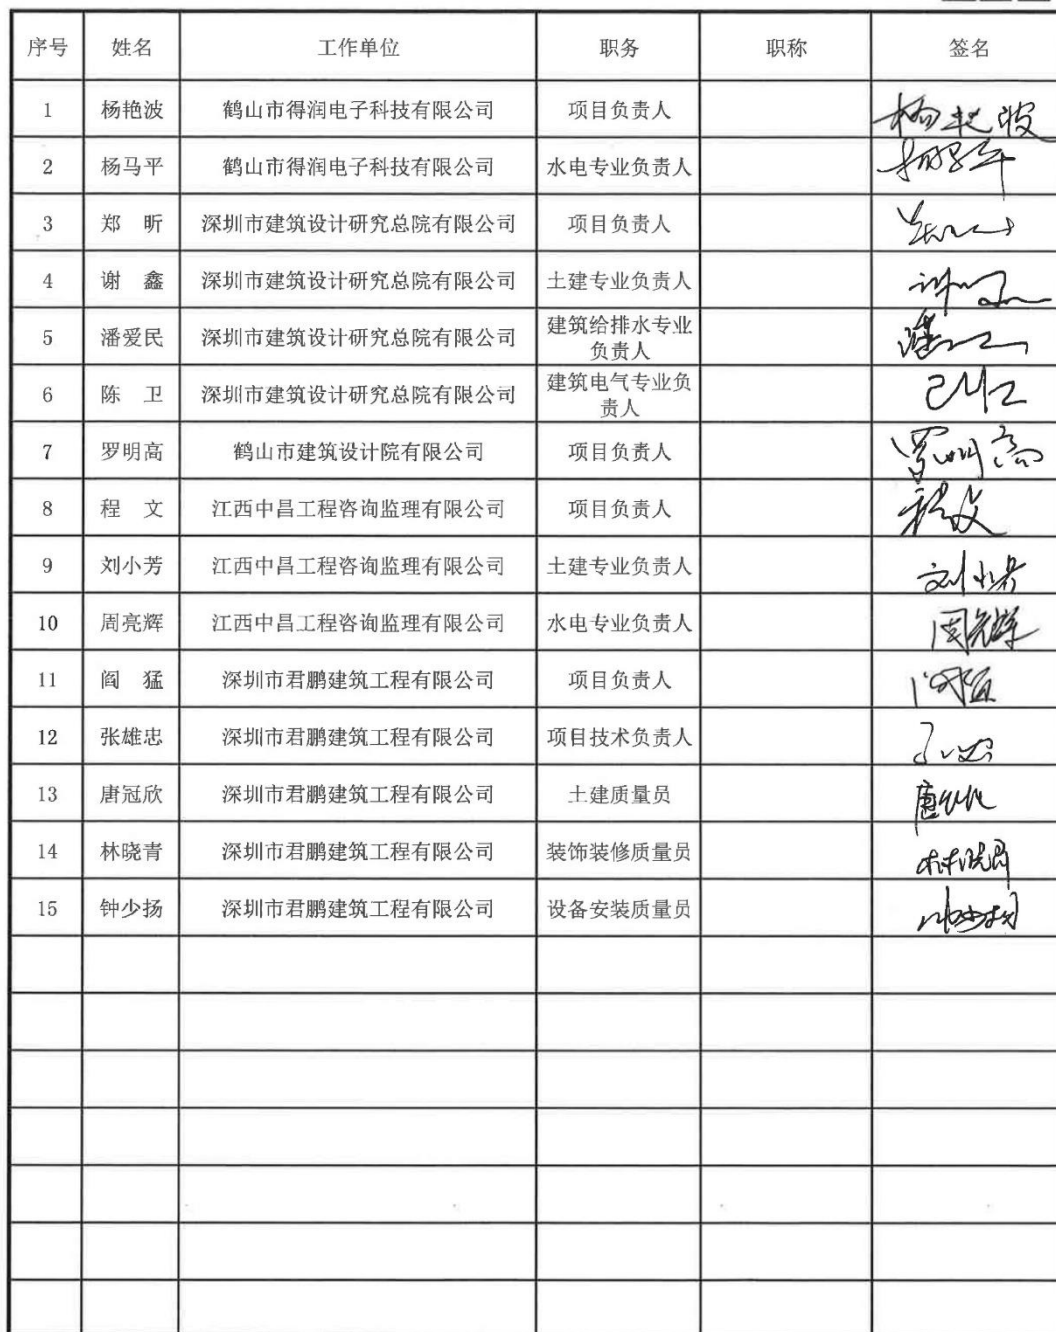 序号 姓名 工作单位 职务 职称 签名
1 杨艳波 鹤山市得润电子科技有限公司 项目负责人 杨艳波
2 杨马平 鹤山市得润电子科技有限公司 水电专业负责人 杨马平
3 郑 昕 深圳市建筑设计研究总院有限公司 项目负责人
4 谢 鑫 深圳市建筑设计研究总院有限公司 土建专业负责人
5 潘爱民 深圳市建筑设计研究总院有限公司 建筑给排水专业
负责人
6 陈 卫 深圳市建筑设计研究总院有限公司 建筑电气专业负
责人
7 罗明高 鹤山市建筑设计院有限公司 项目负责人 罗明高
8 程 文 江西中昌工程咨询监理有限公司 项目负责人 程文
9 刘小芳 江西中昌工程咨询监理有限公司 土建专业负责人 刘小芳
10 周亮辉 江西中昌工程咨询监理有限公司 水电专业负责人 周亮辉
11 阎 猛 深圳市君鹏建筑工程有限公司 项目负责人
12 张雄忠 深圳市君鹏建筑工程有限公司 项目技术负责人
13 唐冠欣 深圳市君鹏建筑工程有限公司 土建质量员
14 林晓青 深圳市君鹏建筑工程有限公司 装饰装修质量员 林晓青
15 钟少扬 深圳市君鹏建筑工程有限公司 设备安装质量员